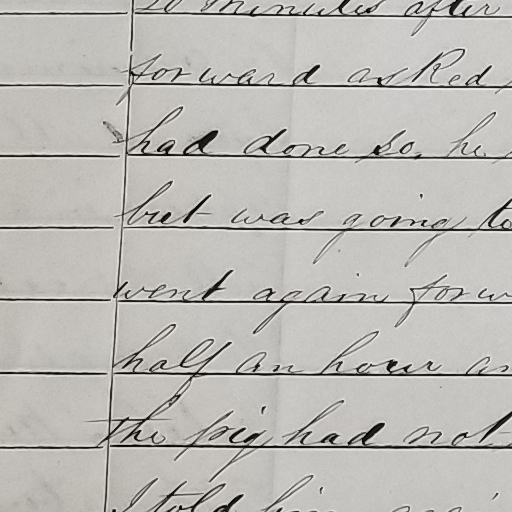 20 minutes after
forward asked
had done so, he
but was going to
went again forw
half an hour an
the pig had not
I told him agai